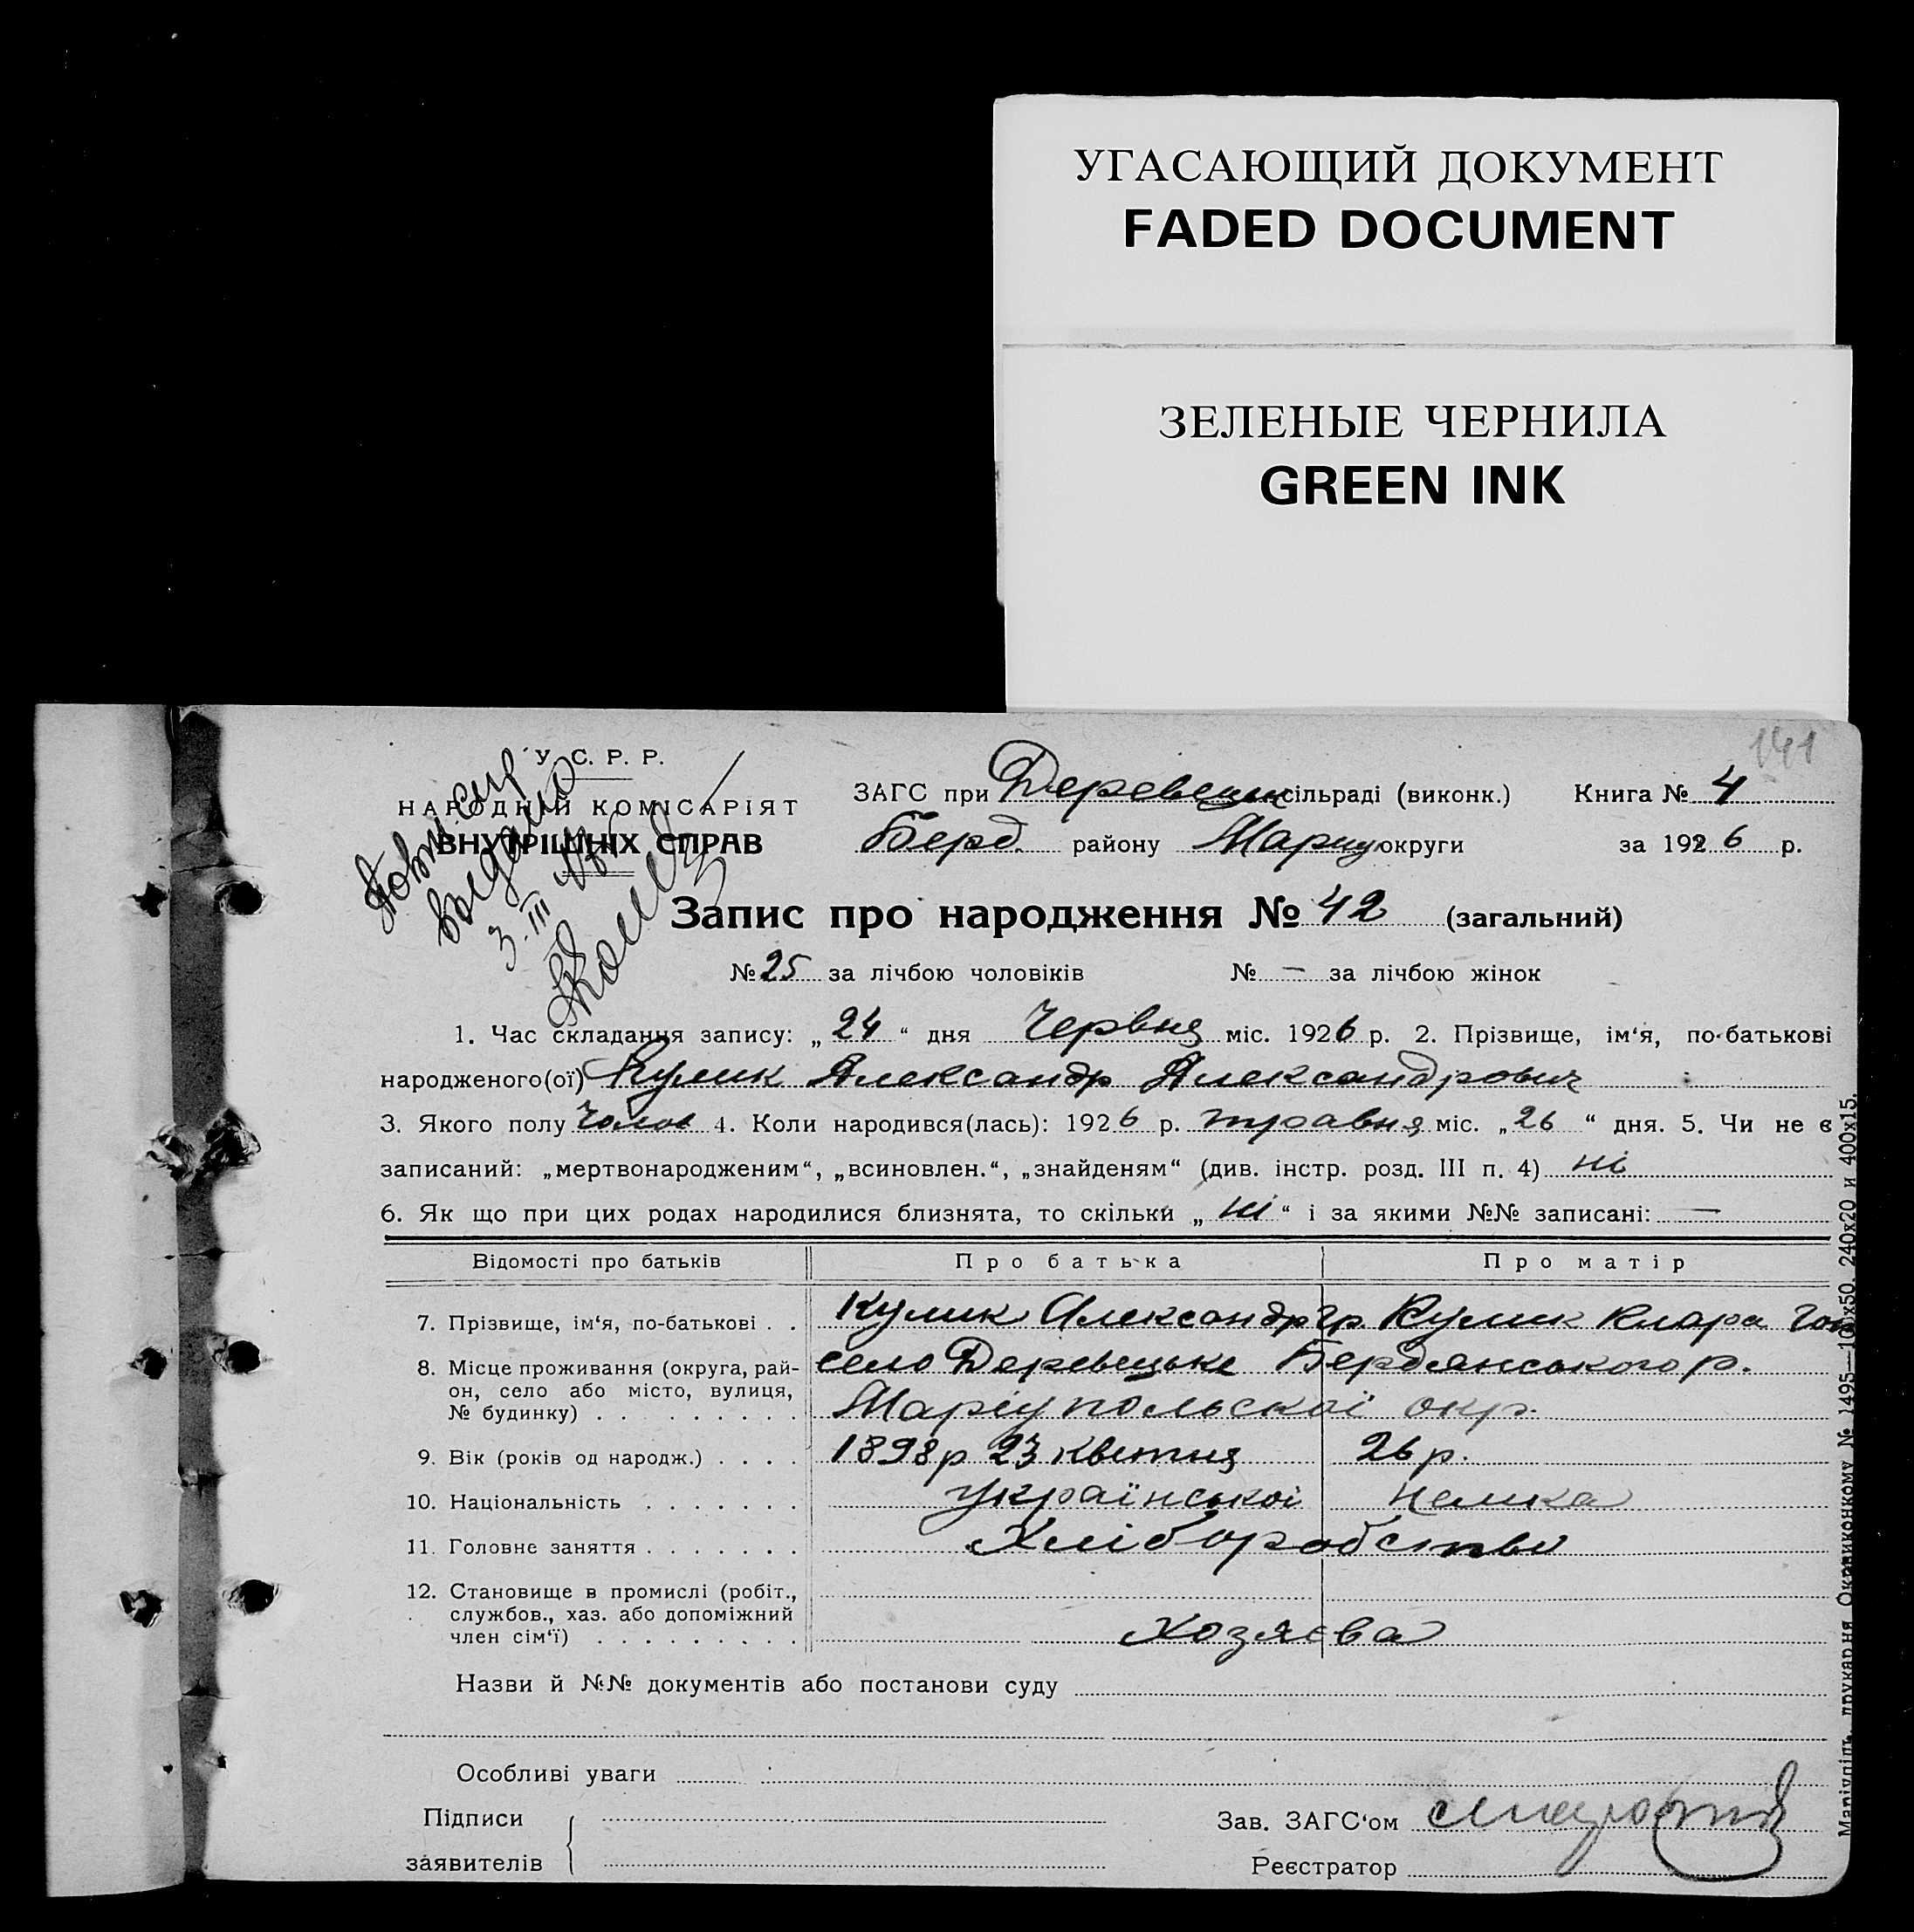 УГАСАЮЩИЙ ДОКУМЕНТ
FADED DOCUMENT
ЗЕЛЕНЫЕ ЧЕРНИЛА
GREEN INK
141
У. С. Р. Р.
НАРОДНІЙ КОМІСАРІЯТ
ВНУТРІШНІХ СПРАВ
выдано
3. III
ЗАГС при Деревецьк сільраді (виконк.) Книга № 4
Берд. району Маріу округи за 1926 р.
Запис про народження № 42 (загальний)
№ 25 за лічбою чоловіків № — за лічбою жінок
1. Час складання запису: „ 24 “ дня Червня міс. 1926 р. 2. Прізвище, ім‘я, по-батькові
народженого(ої) Кулик Александр Александрович
3. Якого полу Чолов 4. Коли народився(лась): 1926 р. травня міс. „ 26 “ дня. 5. Чи не є
записаний: „мертвонародженим“, „всиновлен.“, „знайденям“ (див. інстр. розд. III п. 4) ні
6. Як що при цих родах народилися близнята, то скільки „ ні “ і за якими №№ записані: —
Відомості про батьків Про батька Про матір
7. Прізвище, ім‘я, по-батькові . . Кулик Александр Гр. Кулик Клара
8. Місце проживання (округа, рай- село Деревецьке Бердянського р.
он, село або місто, вулиця,
№ будинку) . . . . . . . . . Маріупольскої окр.
9. Вік (років од народж.) . . . . 1898 р 23 квітня 26 р.
10. Національність . . . . . . . Української Немка
11. Головне заняття . . . . . . . Хліборобство
12. Становище в промислі (робіт.,
службов., хаз. або допоміжний
член сім‘ї) . . . . . . . . . Хозяєва
Назви й №№ документів або постанови суду
Особливі уваги
Підписи
заявителів
Зав. ЗАГС‘ом
Реєстратор
Маріупіль, друкарня Окрвиконкому № 1495—100х50. 240х20 и 400х15.